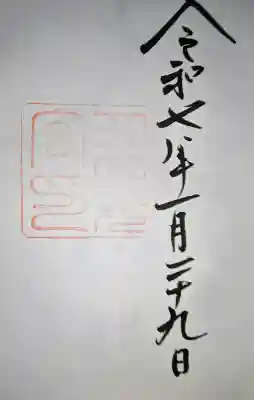 令和七年一月二十九日